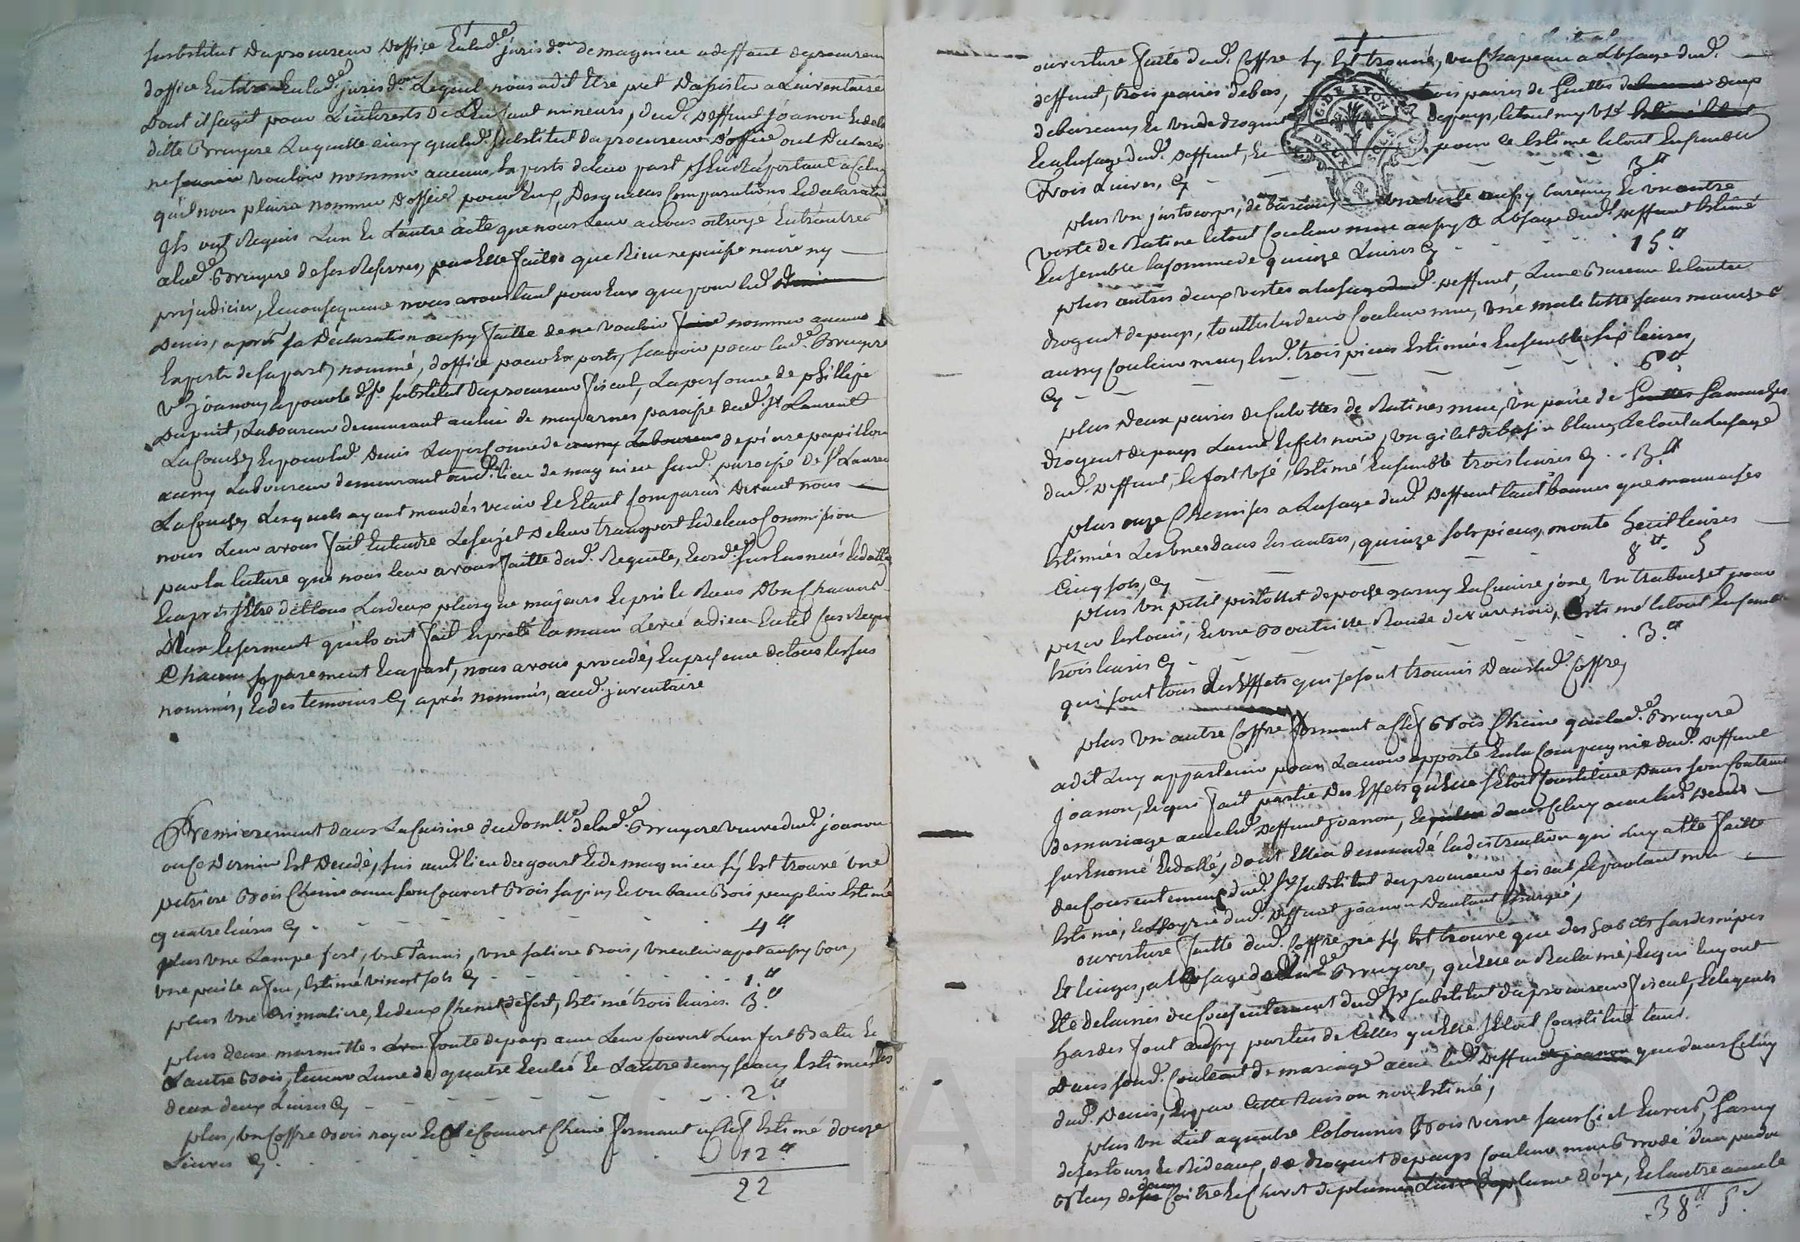 substitut du procureur d'office en lad.e jurisd.on de magnieu adeffaut de procureur
d'office en lad.e jurisd.on Lequel nous a dit Etre pret Dassister a L'inventaire
Dont il sagit pour L'interets de Enfant mineurs, dud. Deffunt joanon Et de la
ditte Bruyere Laquelle ainsy que led. substitut du procureur d'office ont Declarés
ne vouloir nommer aucuns Experts de leur part s'En Raportant a Celuy
qu'il nous plaira nommer d'office pour Eux, Desquelles Comparutions Et declarations
Ils ont Requis L'un Et L'autre acte que nous Leur avons octroyé Entrautres
a lad.e Bruyere de ses Reserves, par Elle faites que Rien ne puisse nuire ny
prejudicier, En consequence nous avons tant pour Eux que pour led.
Denis, après sa Declaration aussy faitte de ne vouloir nommer aucun
Experts de sa part, nommé, d'office pour Experts, scavoir pour lad.e Bruyere
v.e joanon, Et pour le d. s.r substitut du procureur fiscal, La personne de phillipe
Dupuit, Laboureur demeurant au lieu de parroisse dud. S.t Laurent
La Conche, Et pour led. Denis La personne de de pierre papillon
aussy Laboureur demeurant aud. lieu de magnieu sur d. paroisse de S.t Laurent
La Conche, Lesquels ayant mandés venir Et Etant Comparus Devant nous
nous Leur avons fait Entendre Le sujet De leur transport Et de leur Commission
par la lecture que nous leur avons faitte dud. Requete, Et ord.e sus Ennoncés Et dattés
Et après s'Etre dit tous Les deux plus que majeurs Et pris Le Reçu D'un Chacuns
D'Eux Le serment qu'ils ont fait Et preté la main Levée a dieu En tel Cas Requis
Chacun separement En apart, nous avons procedé, En presence de tous les sus
nommés, Et des temoins Cy après nommés, aud. inventaire
Premierement dans La Cuisine du dom.lle de lad.e Bruyere veuve dud. joanon
ou Ce Dernier Est Decedé, sis aud. lieu du gourt Et de magnieu s'y Est trouvé une
petriere Bois Chene avec son Couvert Bois sapin, Et un banc Bois peuplier Estimé
quatre livres Cy . 4.tt
plus une Lampe fert, une tamis, une saliere Bois, aussy bois,
une paile a feu, Estimé vingt sols Cy 1.tt
plus une Crimaliere, Et deux Chenets de fert, Estimé trois livres. 3.tt
plus deux marmittes fonte de pays avec Leur Couvert L'un fert Battu Et
L'autre Bois, tenant L'une de quatre Et L'autre demy seau, Estimées Les
deux deux Livres Cy 2.tt
plus, un Coffre Bois noyer Et Couvert Chene fermant a Clef Estimé douze
Livres Cy . 12.tt
22
ouverture faite dud. Coffre sy Est trouvé, un Chapeau a L'usage dud.
deffunt, trois paires de bas, trois paires de Guettes deux
de bureau, Et une de droguet de pays, le tout my Usé
Et a L'usage dud. deffunt, Et pour ce Estimé Le tout Ensemble
Trois Livres, Cy 3.tt
plus Un justecorps, de bureau, une veste aussy bureau Et une autre
veste de Ratine Le tout Couleur mure aussy a L'usage dud. deffunt Estimé
Ensemble la somme de quinze Livres Cy 15.tt
plus autres deux vestes a L'usage dud. deffunt, L'une Bureau Et L'autre
droguet de pays, touttes les deux Couleur mure, une matelotte sans manches
aussy Couleur mure, lesd. trois pieces Estimées Ensemble six livres,
Cy 6.tt
plus deux paires de Culottes de Ratines mure, un paire de Guettes
droguet de pays Laine Et fil noir, un gilet de basin blanc, Le tout a L'usage
dud. deffunt, Et fort Usé, Estimé Ensemble trois livres Cy 3.tt
plus onze Chemises a L'usage dud. deffunt tant bonnes que mauvaises
Estimées Les Unes dans Les autres, quinze sols piece, monte huit livres
Cinq sols, Cy 8.tt 5
plus Un petit pistollet de poche garny En Cuivre jone, Un trabuchet pour
pezer les louis, Et une Bouteille Ronde de verre noir, Estimé Le tout Ensemble
trois livres Cy 3.tt
qui sont tous Les Effets qui se sont trouvés Dans led. Coffre,
plus Un autre Coffre fermant a Clef Bois Chene que lad.e Bruyere
a dit Luy appartenir pour L'avoir apporté En la Compagnie dud. deffunt
joanon, Et qui fait partie Des Effets qu'Elle s'Etoit Constituée Dans son Contrat
de mariage avec led. deffunt joanon, Et dans Celuy avec led. Denis
sus Enoncé Et datté, dont Elle a demandé La distraction qui Luy a Eté faitte
du Consentement dud. s.r substitut du procureur fiscal, Et partant non
Estimé, Et L'hoyrie dud. deffunt joanon D'autant Chargé,
ouverture faitte dud. Coffre, ne s'y Est trouvé que des habits hardes nipes
Et linges, a L'usage de lad.e Bruyere, qu'Elle a Reclamé, Et qui luy ont
Eté delaissés du Consentement dud. s.r substitut du procureur fiscal, Lesquels
hardes font aussy parties de Celles qu'Elle s'Etoit Constitué tant
Dans son d. Contrat de mariage avec led. Deffunt joanon que dans Celuy
dud. Denis, Et par Cette Raison non Estimé,
plus Un Lit a quatre Colonnes Bois verne sans Ciel Garny
de ses tours Et Rideaux, de droguet de pays Couleur mure Brodé d'un padou
deux Coitre Et Chevet de plume de plume d'oye, Et L'autre avec le
38.tt 5.s